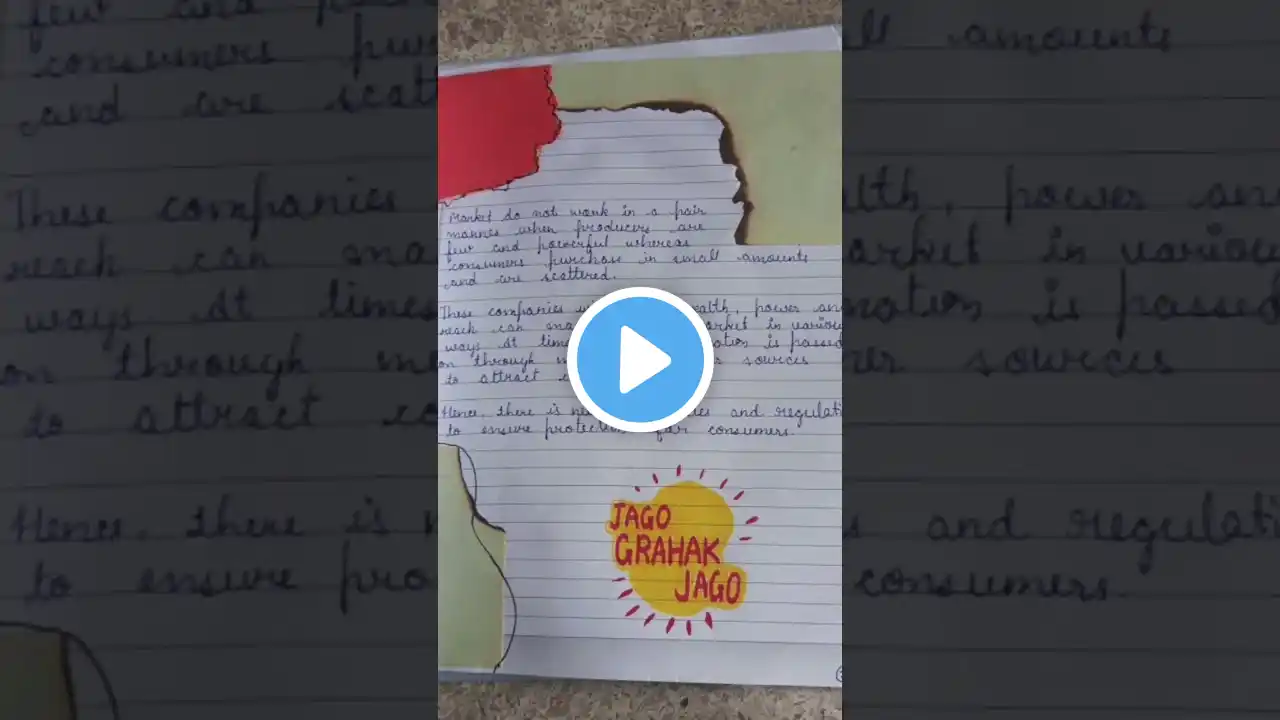 Market do not work in a fair
manner when producers are
few and powerful whereas
consumers purchase in small amounts
and are scattered.
These companies ealth, power an
reach can ma arket in variou
ways At time mation is passed
on through m er sources
to attract c
Hence, there is ne es and regulati
to ensure protection for consumers.
JAGO
GRAHAK
JAGO